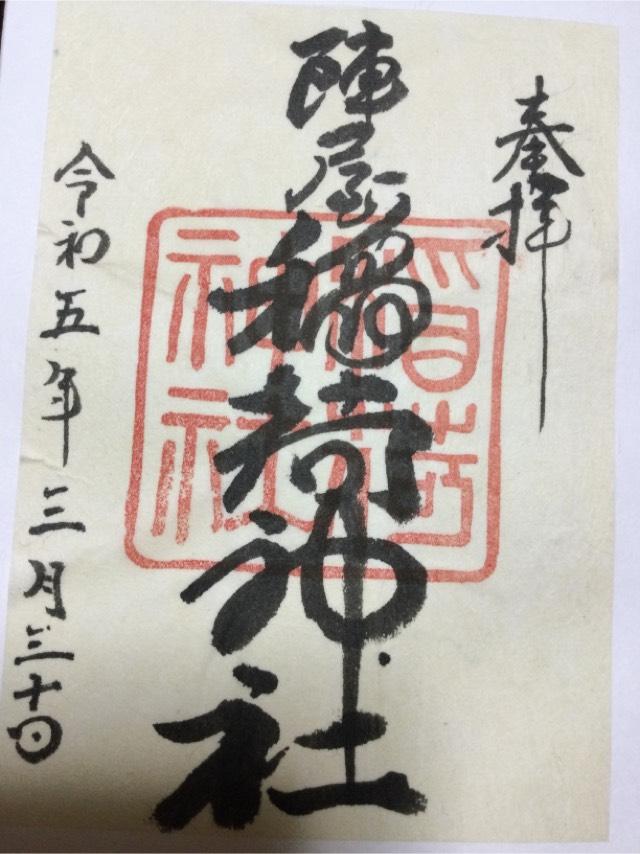 奉拝
陣屋稲荷神社
令和五年三月三十日